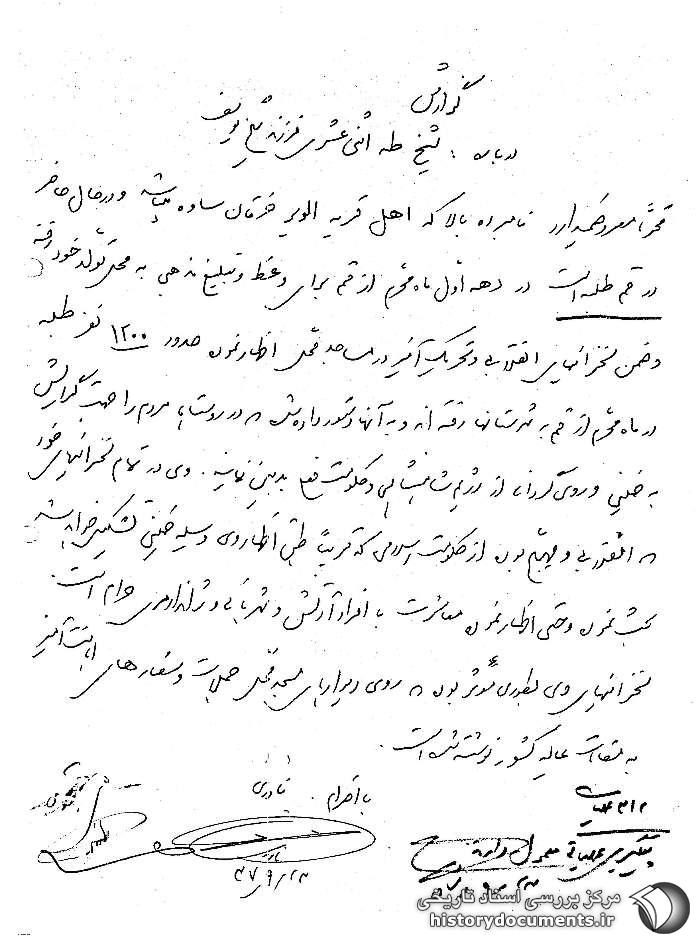 گزارش
درباره : شیخ طه اثنی عشری فرزند شیخ
محترماً معروض میدارد نامبرده بالا که اهل قریه الویر خرقان ساوه میباشد و در حال حاضر
در قم طلبه است در دهه اول ماه محرم از قم برای وعظ و تبلیغ مذهبی به محل تولد خود رفته
و ضمن سخنرانیهای انقلابی و تحریک آمیز در مساجد محل اظهار نموده حدود ۱۲۰۰ نفر طلبه
در ماه محرم از قم به شهرستانها رفته اند و به آنها دستور داده شده در روستاها مردم را جهت گرایش
به خمینی و روی گرداندن از رژیم شاهنشاهی و حکومت فعلی بدبین نمایند . وی در تمام سخنرانیهای خود
که انقلابی و مهیج بوده از حکومت اسلامی که قریباً طبق اظهار وی وسیله خمینی تشکیل خواهد شد
بحث نموده و حتی اظهار نموده معاشرت با افراد ارتش و شهربانی و ژاندارمری حرام است .
سخنرانیهای وی بطوری مؤثر بوده که روی دیوارهای مسجد محل جملات و شعارهای اهانت آمیز
به مقامات عالیه کشور نوشته شده است .
با احترام . نادری
۳۱۲ عملیات
۵۷/۹/۲۳
مرکز بررسی اسناد تاریخی
historydocuments.ir